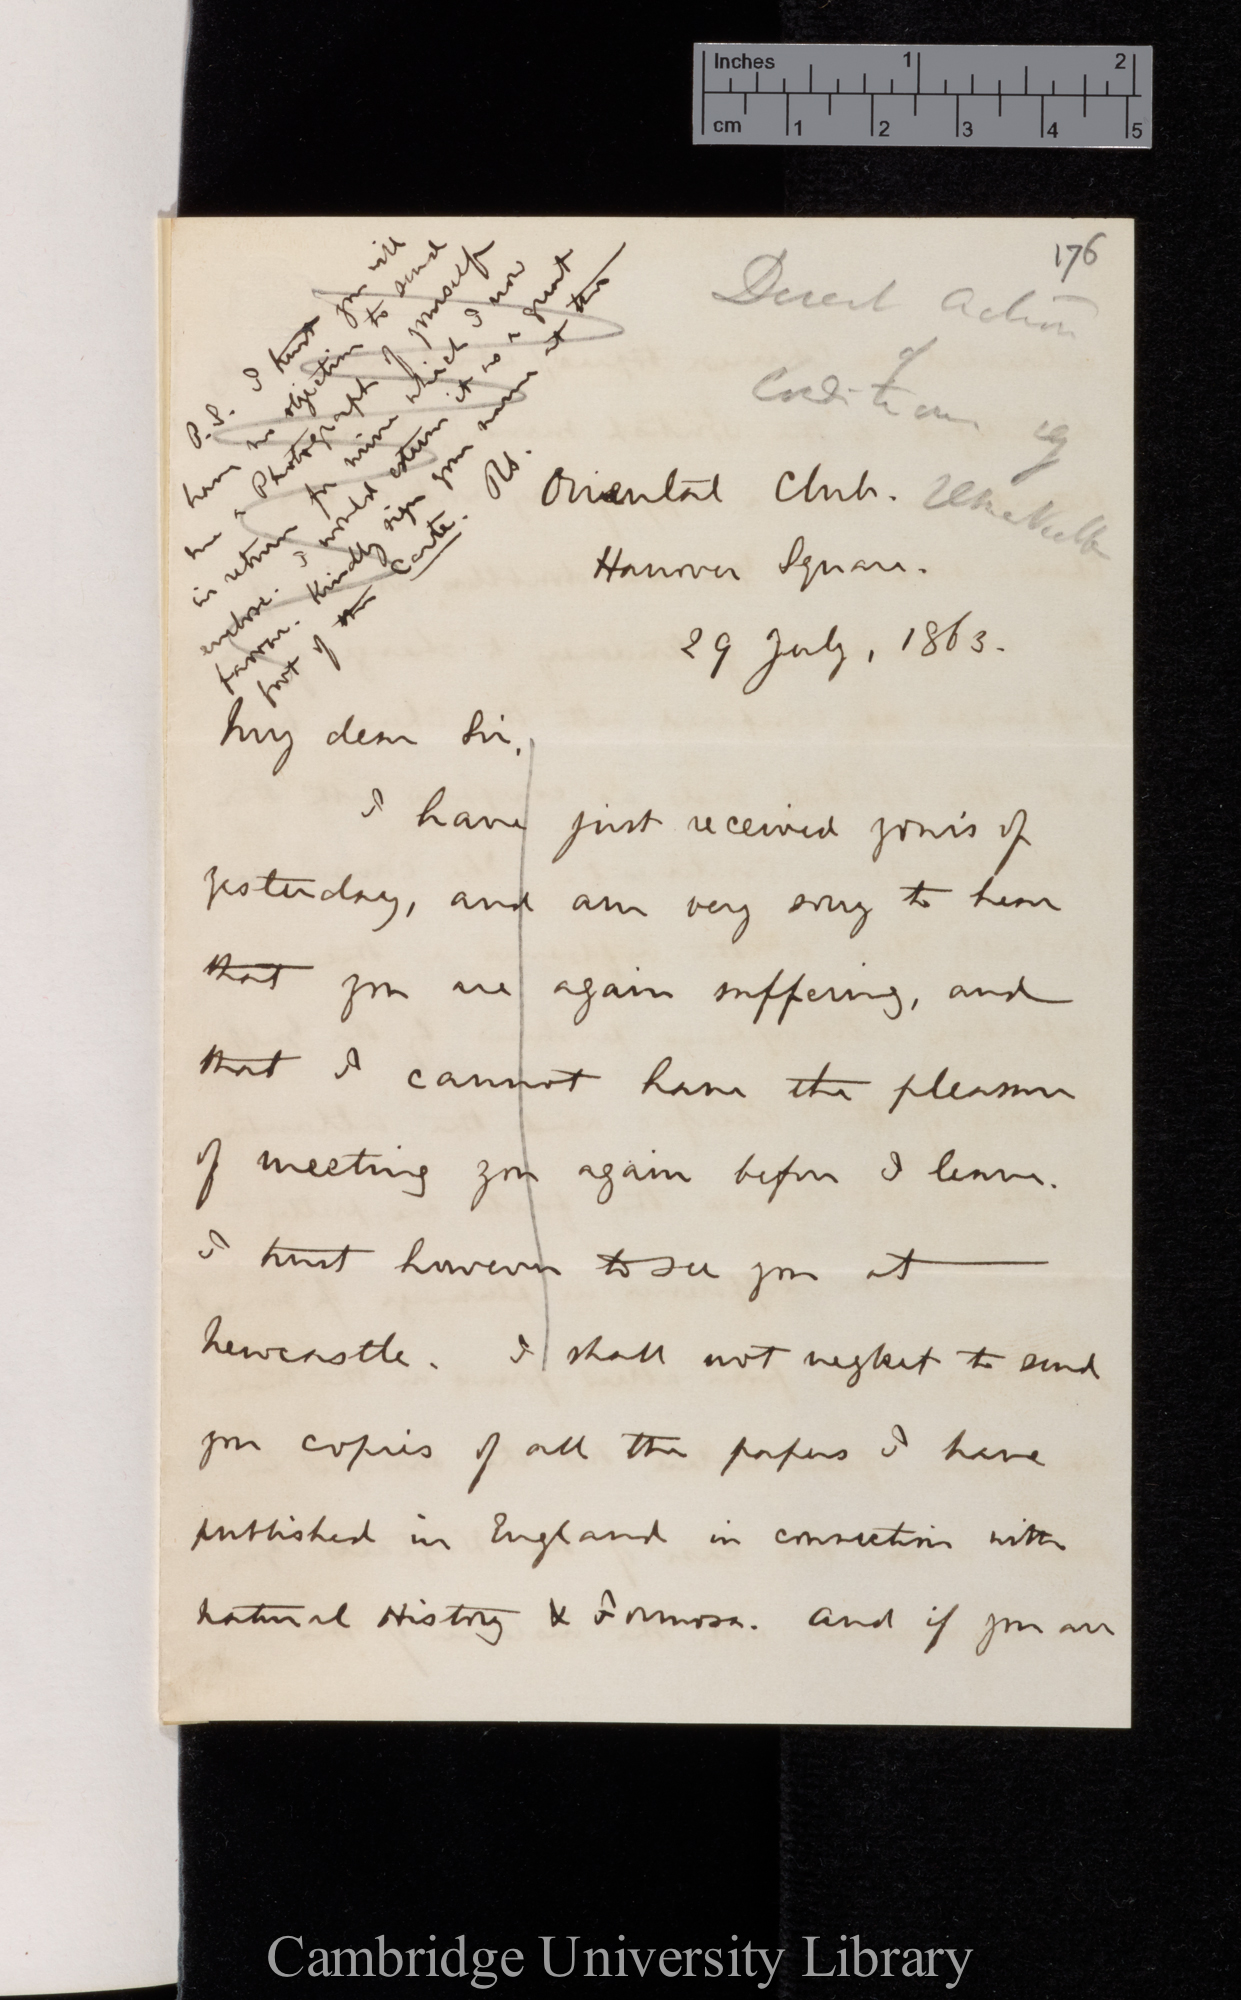 Inches 1 2
cm 1 2 3 4 5
176
Direct action
of
Condition
P.S. I trust you will
have no objection to send
me a Photograph of yourself
in return for mine which I now
enclose. I would esteem it as a great
favour. Kindly sign your name at the
foot of the Carte. RS.
Oriental Club.
Hanover Square.
29 July, 1863.
My dear Sir,
I have just received yours of
yesterday, and am very sorry to hear
that you are again suffering, and
that I cannot have the pleasure
of meeting you again before I leave.
I trust however to see you at
Newcastle. I shall not neglect to send
you copies of all the papers I have
published in England in connection with
Natural History & Formosa. And if you are
Cambridge University Library